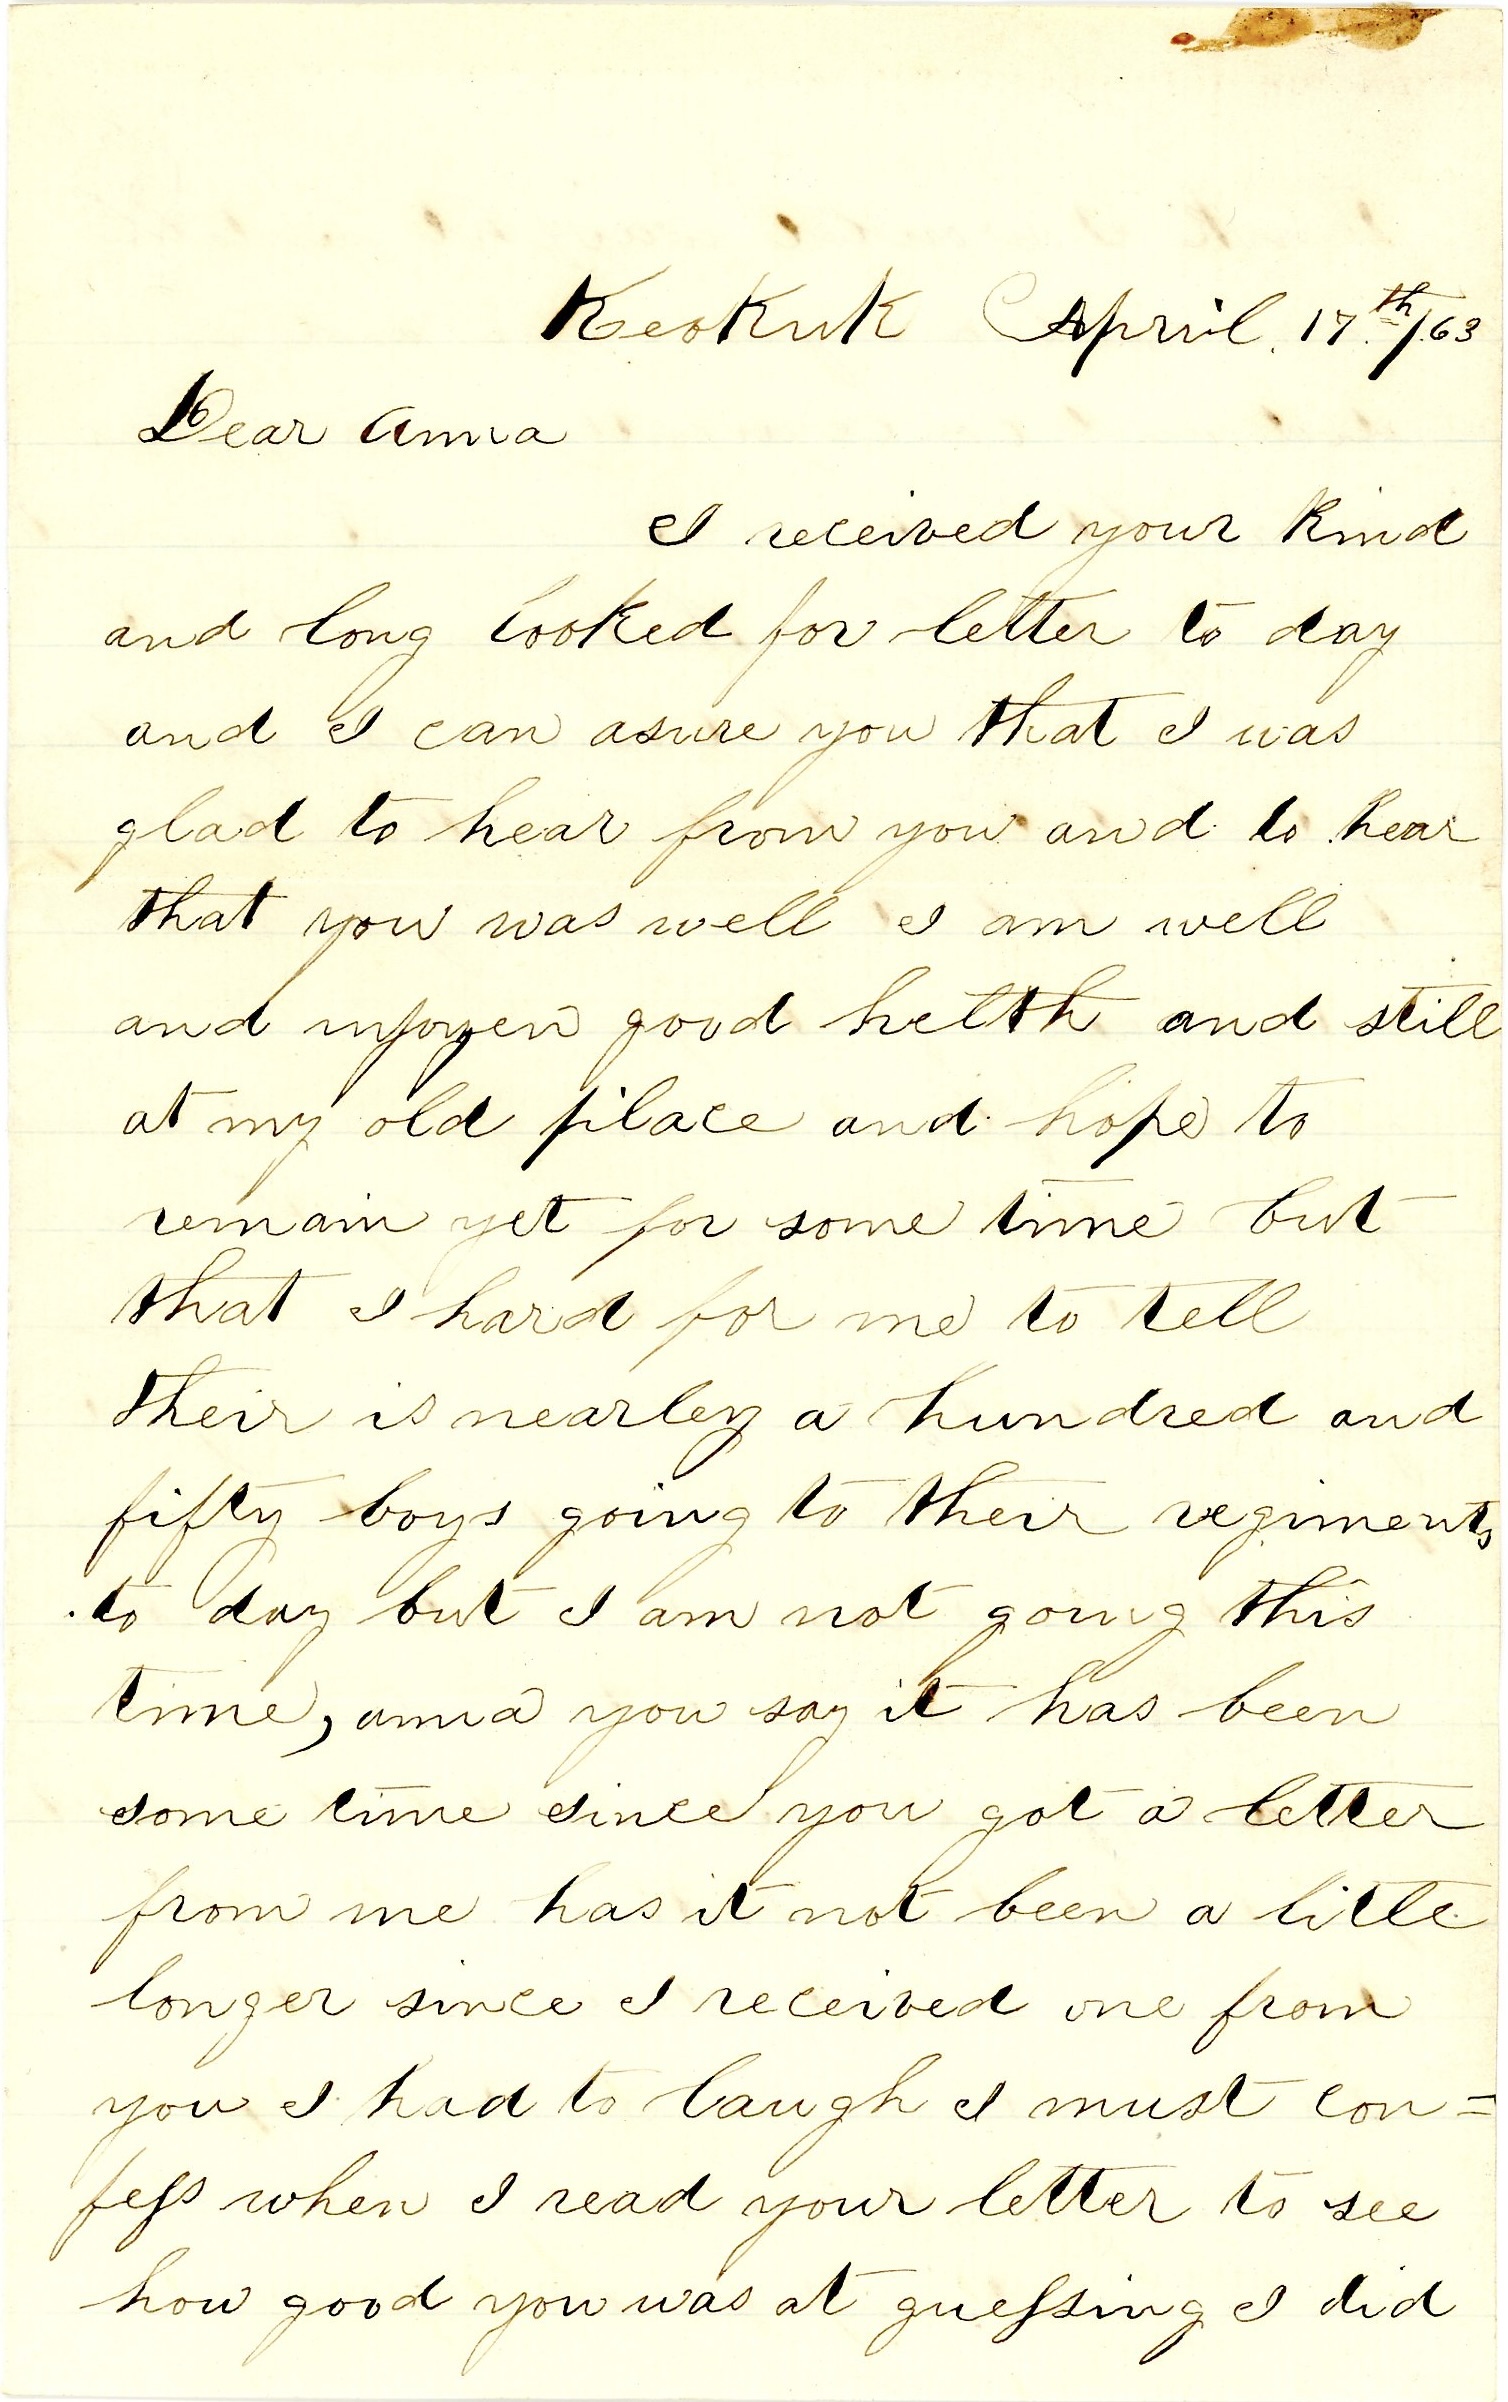 Keokuk April. 17th/63
Dear Anna
I received your kind
and long looked for letter to day
and I can asure you that I was
glad to hear from you and to hear
that you was well I am well
and injoyen good helth and still
at my old place and hope to
remain yet for some time but
that I hard for me to tell
their is nearley a hundred and
fifty boys going to their regiments
to day but I am not going this
time, anna you say it has been
some time since you got a letter
from me has it not been a little
longer since I received one from
you I had to laugh I must con=
fess when I read your letter to see
how good you was at guessing I did